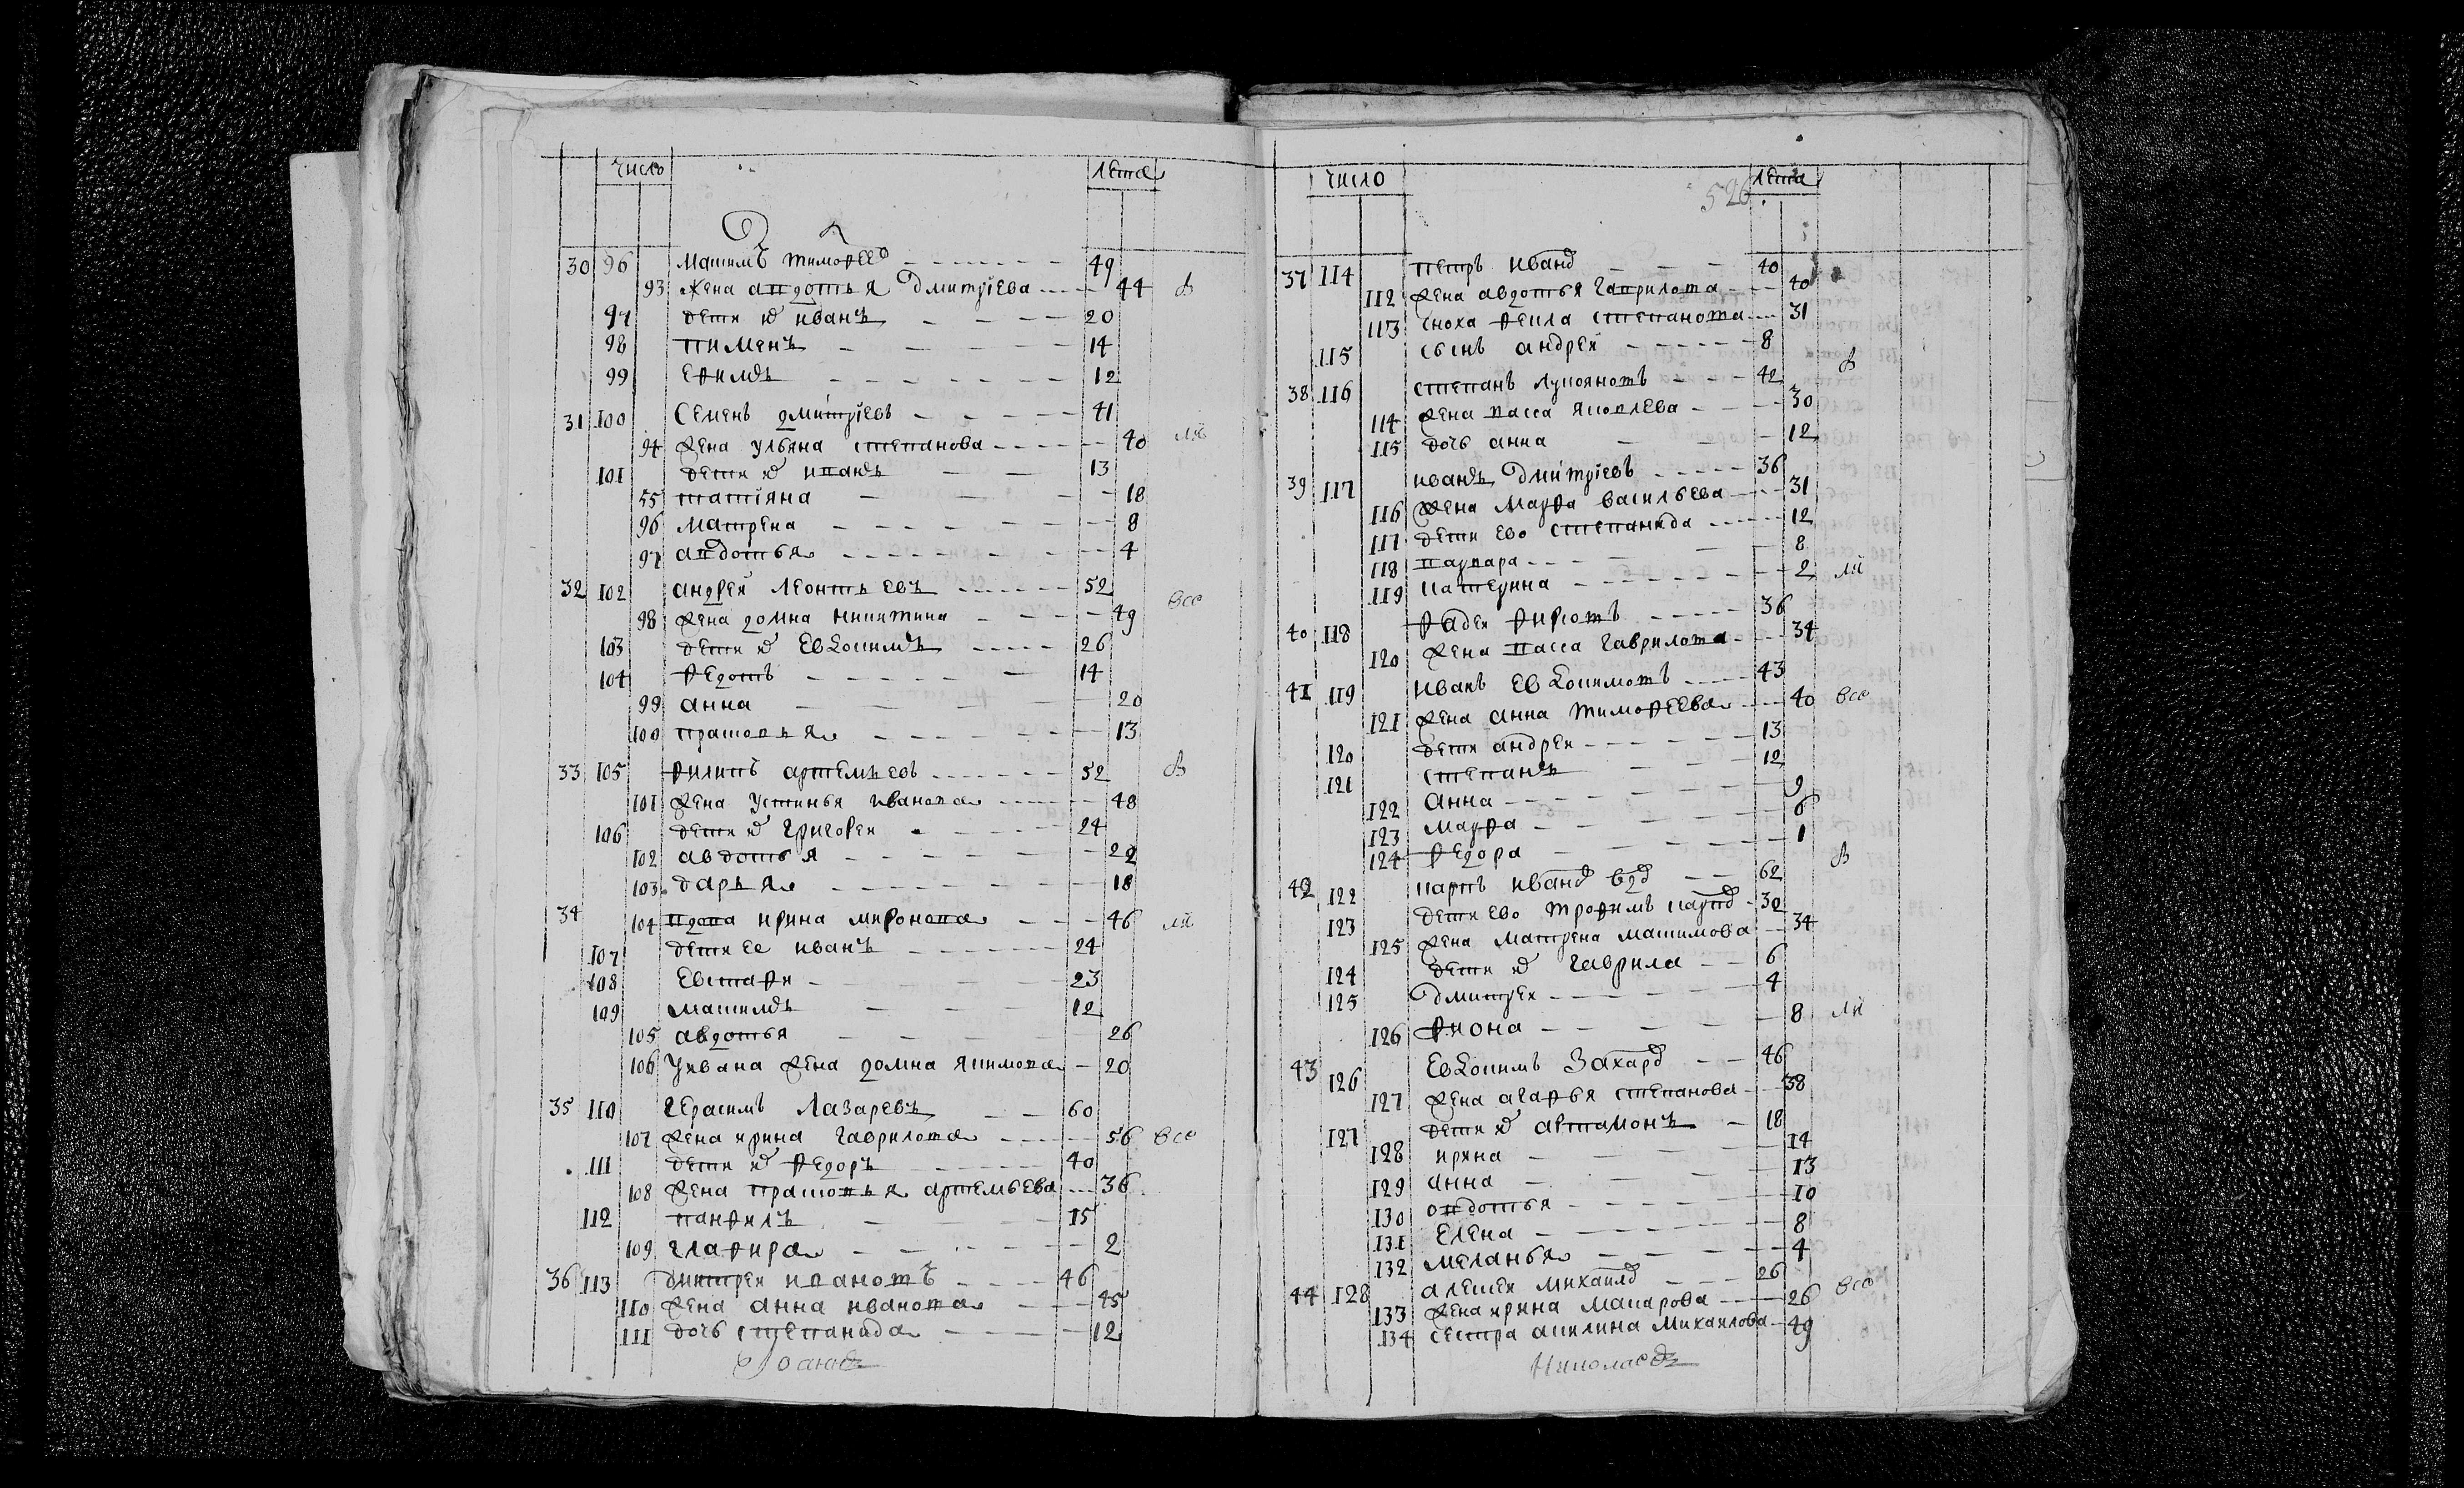 число лета
30 96 Максимъ тимофеев 49
93 жена авдотья Дмитріева 44 в
97 дети ев иванъ 20
98 пименъ 14
99 ефимъ 12
31 100 Семенъ дмитріевъ 41
94 жена ульяна степанова 40
101 дети ев иванъ 13
55 татіяна 18
96 матрена 8
97 авдотья 4
32 102 андрей леонтьевъ 52
98 жена домна никитина 49 все
103 дети ев евдокимъ 26
104 федотъ 14
99 анна 20
100 прасковья 13
33 105 филипъ артемьевъ 52 в
101 жена устинья иванова 48
106 дети ев григорей 24
102 авдотья 22
103 дарья 18
34 104 вдова ирина миронова 46
107 дети ее иванъ 24
108 евстафи 23
109 максимъ 12
105 авдотья 26
106 Уивана жена домна якимова 20
35 110 герасимъ лазаревъ 60
107 жена ирина гаврилова 56 все
111 дети ев федоръ 40
108 жена прасковья артемьева 36
112 панфилъ 15
109 глафира 2
36 113 дмитрей ивановъ 46
110 жена анна иванова 45
111 дочь степанида 12
Иоаннъ
число 526 лета
37 114 петръ иванов 40
112 жена авдотья гаврилова 40
113 сноха фекла степанова 31
115 сынъ андрей 8
38 116 степанъ лукояновъ 42 в
114 жена васса яковлева 30
115 дочь анна 12
39 117 иванъ Дмитріевъ 36
116 жена марфа васильева 31
117 дети ево степанида 12
118 варвара 8
119 катерина 2
40 118 фадей фирсовъ 36
120 жена васса гаврилова 34
41 119 иванъ евдокимовъ 43
121 жена анна тимофеева 40 все
120 дети андрей 13
121 степанъ 12
122 анна 9
123 марфа 6
124 федора 1
42 122 карпъ иванов вдов 62 в
123 дети ево трофимъ карпов 32
125 жена матрена максимова 34
124 дети ев гаврила 6
125 Дмитрей 4
126 фиона 8
43 126 евдокимъ Захаров 46
127 жена агафья степанова 38
127 дети ев артамонъ 18
128 ирина 14
129 анна 13
130 овдотья 10
131 елена 8
132 меланья 4
44 128 алексей михаилов 26 все
133 жена ирина макарова 26
134 сестра акилина михаилова 49
Николаевъ